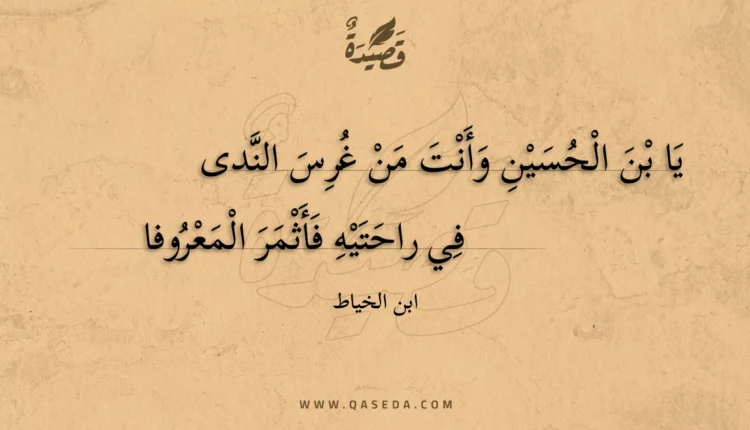 قَصِيْدَةٌ
يَا بْنَ الْحُسَيْنِ وَأَنْتَ مَنْ غُرِسَ النَّدى
فِي راحَتَيْهِ فَأَثْمَرَ الْمَعْرُوفا
ابن الخياط
WWW.QASEDA.COM